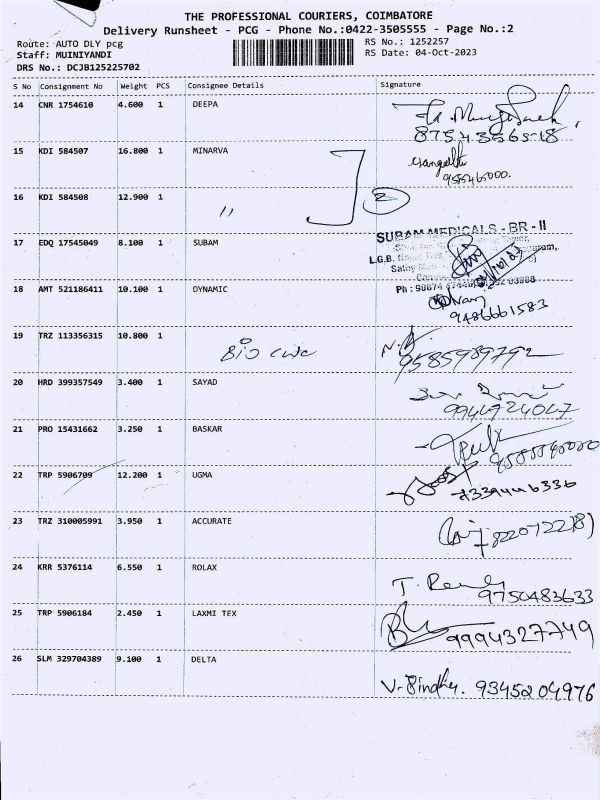 THE PROFESSIONAL COURIERS, COIMBATORE
Delivery Runsheet - PCG - Phone No.:0422-3505555 - Page No.:2
Route: AUTO DLY pcg
Staff: MUINIYANDI
DRS No.: DCJB125225702
RS No.: 1252257
RS Date: 04-Oct-2023
S No Consignment No Weight PCS Consignee Details Signature
14 CNR 1754610 4.600 1 DEEPA
8754356518
15 KDI 584507 16.800 1 MINARVA
9555465000.
16 KDI 584508 12.900 1 〃 2
17 EDQ 17545049 8.100 1 SUBAM
SUBAM MEDICALS - BR - II
L.G.B.
18 AMT 521186411 10.100 1 DYNAMIC
9486661583
19 TRZ 113356315 10.800 1 Bio
9585989792
20 HRD 399357549 3.400 1 SAYAD
9944724047
21 PRO 15431662 3.250 1 BASKAR
22 TRP 5906709 12.200 1 UGMA
7339446336
23 TRZ 310005991 3.950 1 ACCURATE
24 KRR 5376114 6.550 1 ROLAX
9750483633
25 TRP 5906184 2.450 1 LAXMI TEX
9994327749
26 SLM 329704389 9.100 1 DELTA
V. Bindhu. 9345204976